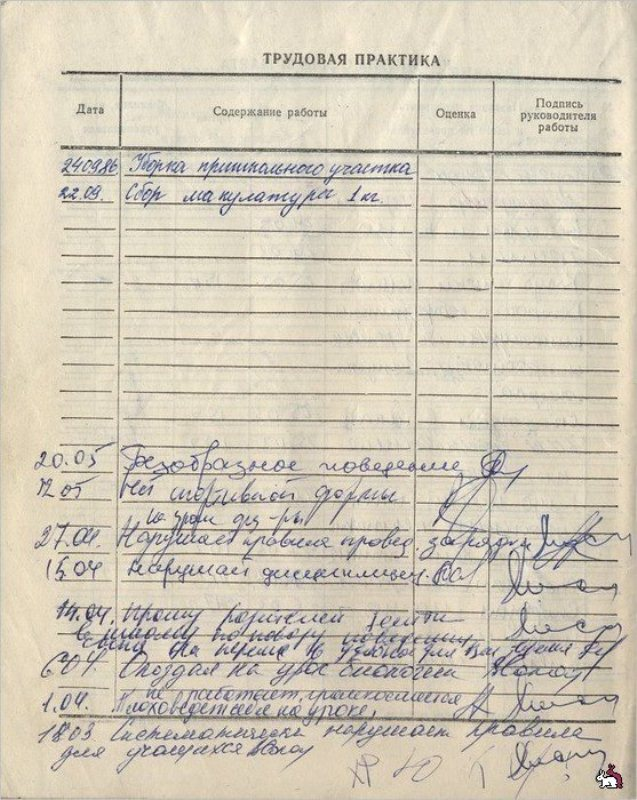 ТРУДОВАЯ ПРАКТИКА
Дата Содержание работы Оценка Подпись руководителя работы
240986 Уборка пришкольного участка
22.09. Сбор макулатуры 1 кг.
20.05 Безобразное поведение
12 05 Нет спортивной формы
на уроке физ-ры
27.04. Нарушает правила провед. зарядки
15.04 Нарушает дисциплину.
14.04. Прошу родителей зайти
в школу по поводу поведения
сына на перемен
6.04 Опоздал на урок биологии
не работает,
1.04. Плохо ведет себя на уроке,
18.03 Систематически нарушает правила
для учащихся